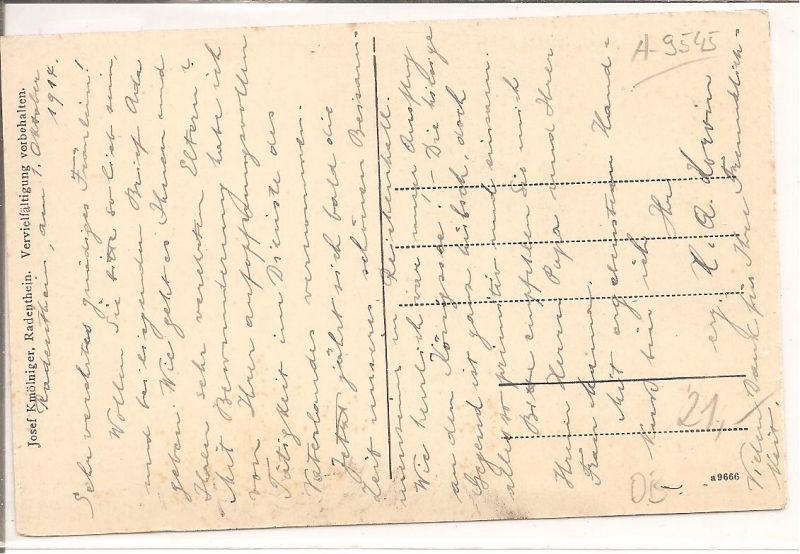 Radenthein, am 1. Oktober
1914.
Sehr verehrtes gnädiges Fräulein!
Wollen Sie bitte so lieb sein,
und beiliegenden Brief Ada
geben. Wie geht es Ihnen und
Ihren sehr verehrten Eltern?
Mit Bewunderung habe ich
von Ihrer aufopferungsvollen
Tätigkeit im Dienste des
Vaterlandes vernommen.
Jetzt jährt sich bald die
Zeit unseres schönen Beisam-
menseins in Reichenhall.
Wie herrlich war unser Ausflug
an den Königssee! – Die hiesige
Gegend ist ganz hübsch, doch
alles so primitiv und einsam.
Bitte empfehlen Sie mich
Ihrem Herrn Papa und Ihrer
Frau Mama.
Mit ergebenstem Hand-
kuss bin ich Ihr
erg.
Vielen Dank für Ihre Freundlich-
keit.
Josef Kmölniger, Radenthein. Vervielfältigung vorbehalten.
a 9666
A-9545
21,